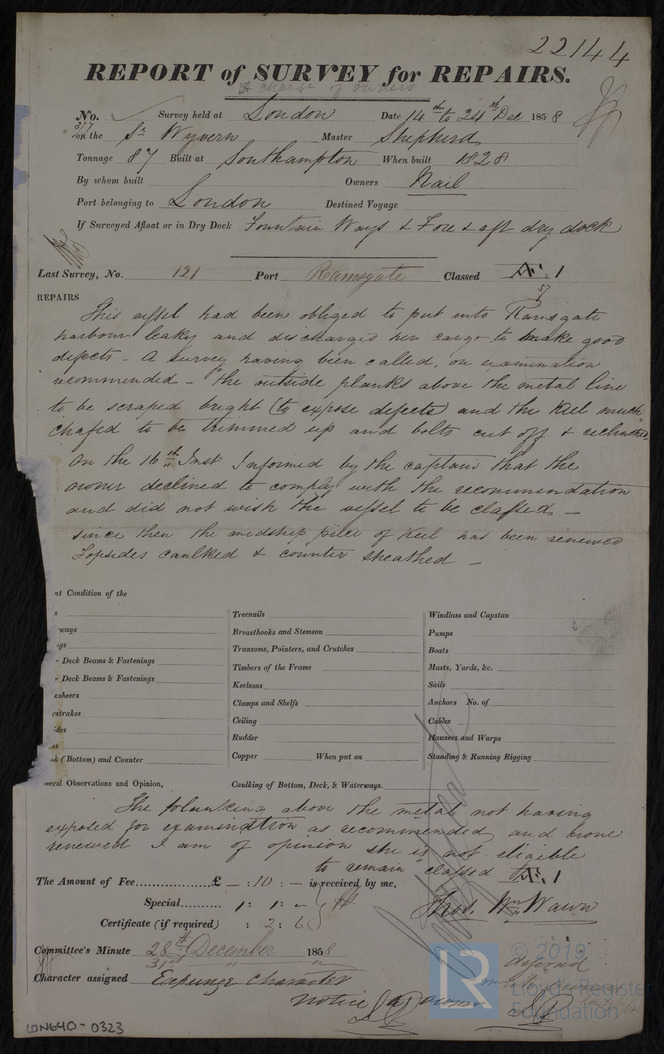 22144
REPORT of SURVEY for REPAIRS.
& change of owners
No. 317 Survey held at London Date 14th to 24th Dec 1858
on the Sr Wyvern Master Shepherd
Tonnage 87 Built at Southampton When built 1828
By whom built Owners Nail
Port belonging to London Destined Voyage
If Surveyed Afloat or in Dry Dock Fountain Ways & Fore & aft dry dock
Last Survey, No. 121 Port Ramsgate Classed Æ. 1
57
REPAIRS
This vessel had been obliged to put into Ramsgate
harbour leaky and discharged her cargo to make good
defects - A survey having been called, on examination
recommended - "the outside planks above the metal line
to be scraped bright (to expose defects) and the keel much
chafed to be trimmed up and bolts cut off & reclinched"
On the 16th Inst Informed by the captain that the
owner declined to comply with the recommendation
and did not wish the vessel to be classed -
since then the midship piece of keel has been renewed
Topsides caulked & counter sheathed -
nt Condition of the
s Treenails Windlass and Capstan
ways Breasthooks and Stemson Pumps
gs Transoms, Pointers, and Crutches Boats
Deck Beams & Fastenings Timbers of the Frame Masts, Yards, &c.
Deck Beams & Fastenings Keelsons Sails
sheers Clamps and Shelfs Anchors No. of
strakes Ceiling Cables
ides Rudder Hawsers and Warps
k (Bottom) and Counter Copper When put on Standing & Running Rigging
neral Observations and Opinion, Caulking of Bottom, Deck, & Waterways.
The planking above the metal not having
exposed for examination as recommended, and none
renewed I am of opinion she is not eligible
to remain classed Æ. 1
The Amount of Fee £ - : 10 : - is received by me,
Special 1 : 1 : -
Certificate (if required) : 2 : 6
Thos. Wm. Wawn
Committee's Minute 28th December 1858
31st
Character assigned Expunge Character
deferred
notice to owner
LON640-0323
© 2019
LR
Lloyd's Register
Foundation